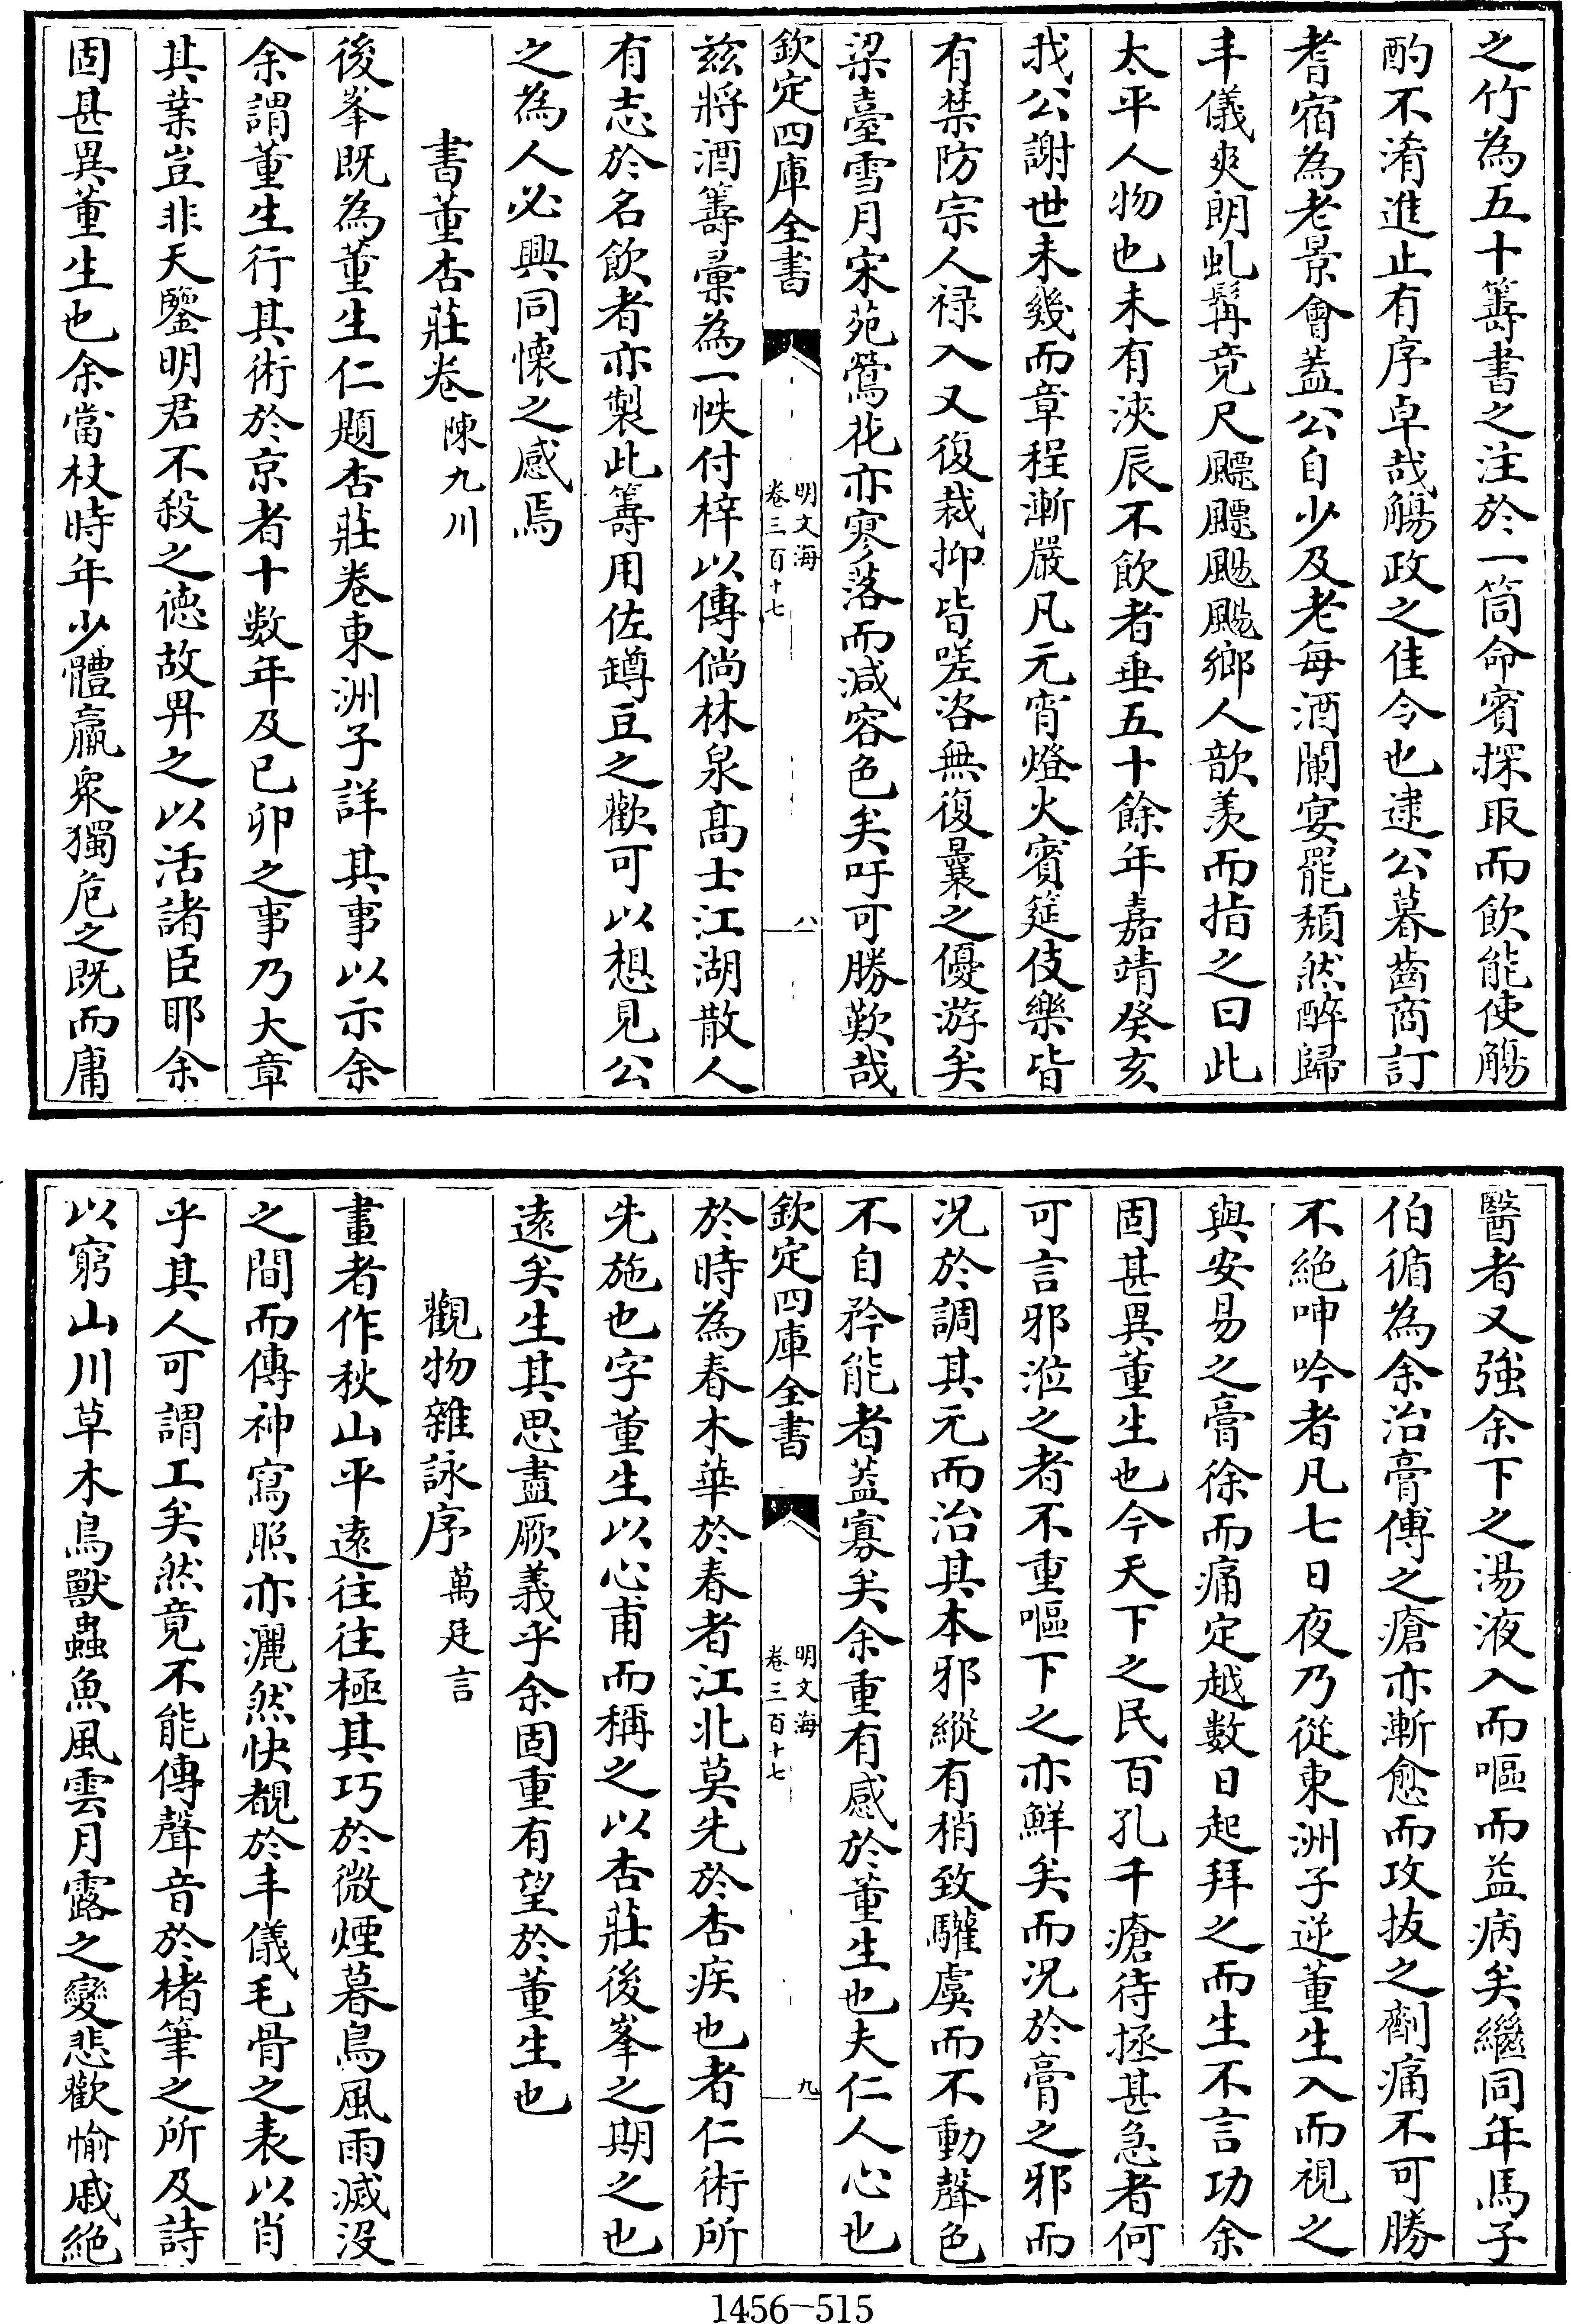 之竹為五十籌書之注於一筒命賓探取而飲能使觴
酌不淆進止有序卓哉觴政之佳令也逮公暮齒商訂
耆宿為老景會蓋公自少及老每酒闌宴罷頽然醉歸
丰儀爽朗虬髯竟尺飃飃颺颺鄉人歆羨而指之曰此
太平人物也未有浹辰不飲者垂五十餘年嘉靖癸亥
我公謝世未幾而章程漸嚴凡元宵燈火賓筵伎樂皆
有禁防宗人祿入又復裁抑皆嗟咨無復曩之優游矣
梁臺雪月宋苑鶯花亦寥落而減容色矣吁可勝歎哉
欽定四庫全書
明文海
卷三百十七
八
兹將酒籌彙為一帙付梓以傳倘林泉髙士江湖散人
有志於名飲者亦製此籌用佐罇豆之歡可以想見公
之為人必興同懷之感焉
書董杏莊卷陳九川
後峯既為董生仁題杏莊卷東洲子詳其事以示余
余謂董生行其術於京者十數年及己卯之事乃大章
其業豈非天鑒明君不殺之徳故畀之以活諸臣耶余
固甚異董生也余當杖時年少體羸衆獨危之既而庸
醫者又強余下之湯液入而嘔而益病矣繼同年馬子
伯循為余治膏傅之瘡亦漸愈而攻拔之劑痛不可勝
不絶呻吟者凡七日夜乃從東洲子逆董生入而視之
與安易之膏徐而痛定越數日起拜之而生不言功余
固甚異董生也今天下之民百孔千瘡待拯甚急者何
可言邪涖之者不重嘔下之亦鮮矣而况於膏之邪而
况於調其元而治其本邪縱有稍致驩虞而不動聲色
不自矜能者蓋寡矣余重有感於董生也夫仁人心也
欽定四庫全書
明文海
卷三百十七
九
於時為春木華於春者江北莫先於杏疾也者仁術所
先施也字董生以心甫而稱之以杏莊後峯之期之也
逺矣生其思盡厥義乎余固重有望於董生也
觀物雜詠序萬廷言
畫者作秋山平逺往往極其巧於微煙暮鳥風雨滅没
之間而傳神寫照亦灑然快覩於丰儀毛骨之表以肖
乎其人可謂工矣然竟不能傳聲音於楮筆之所及詩
以窮山川草木鳥獸蟲魚風雲月露之變悲歡愉戚絶
1456-515